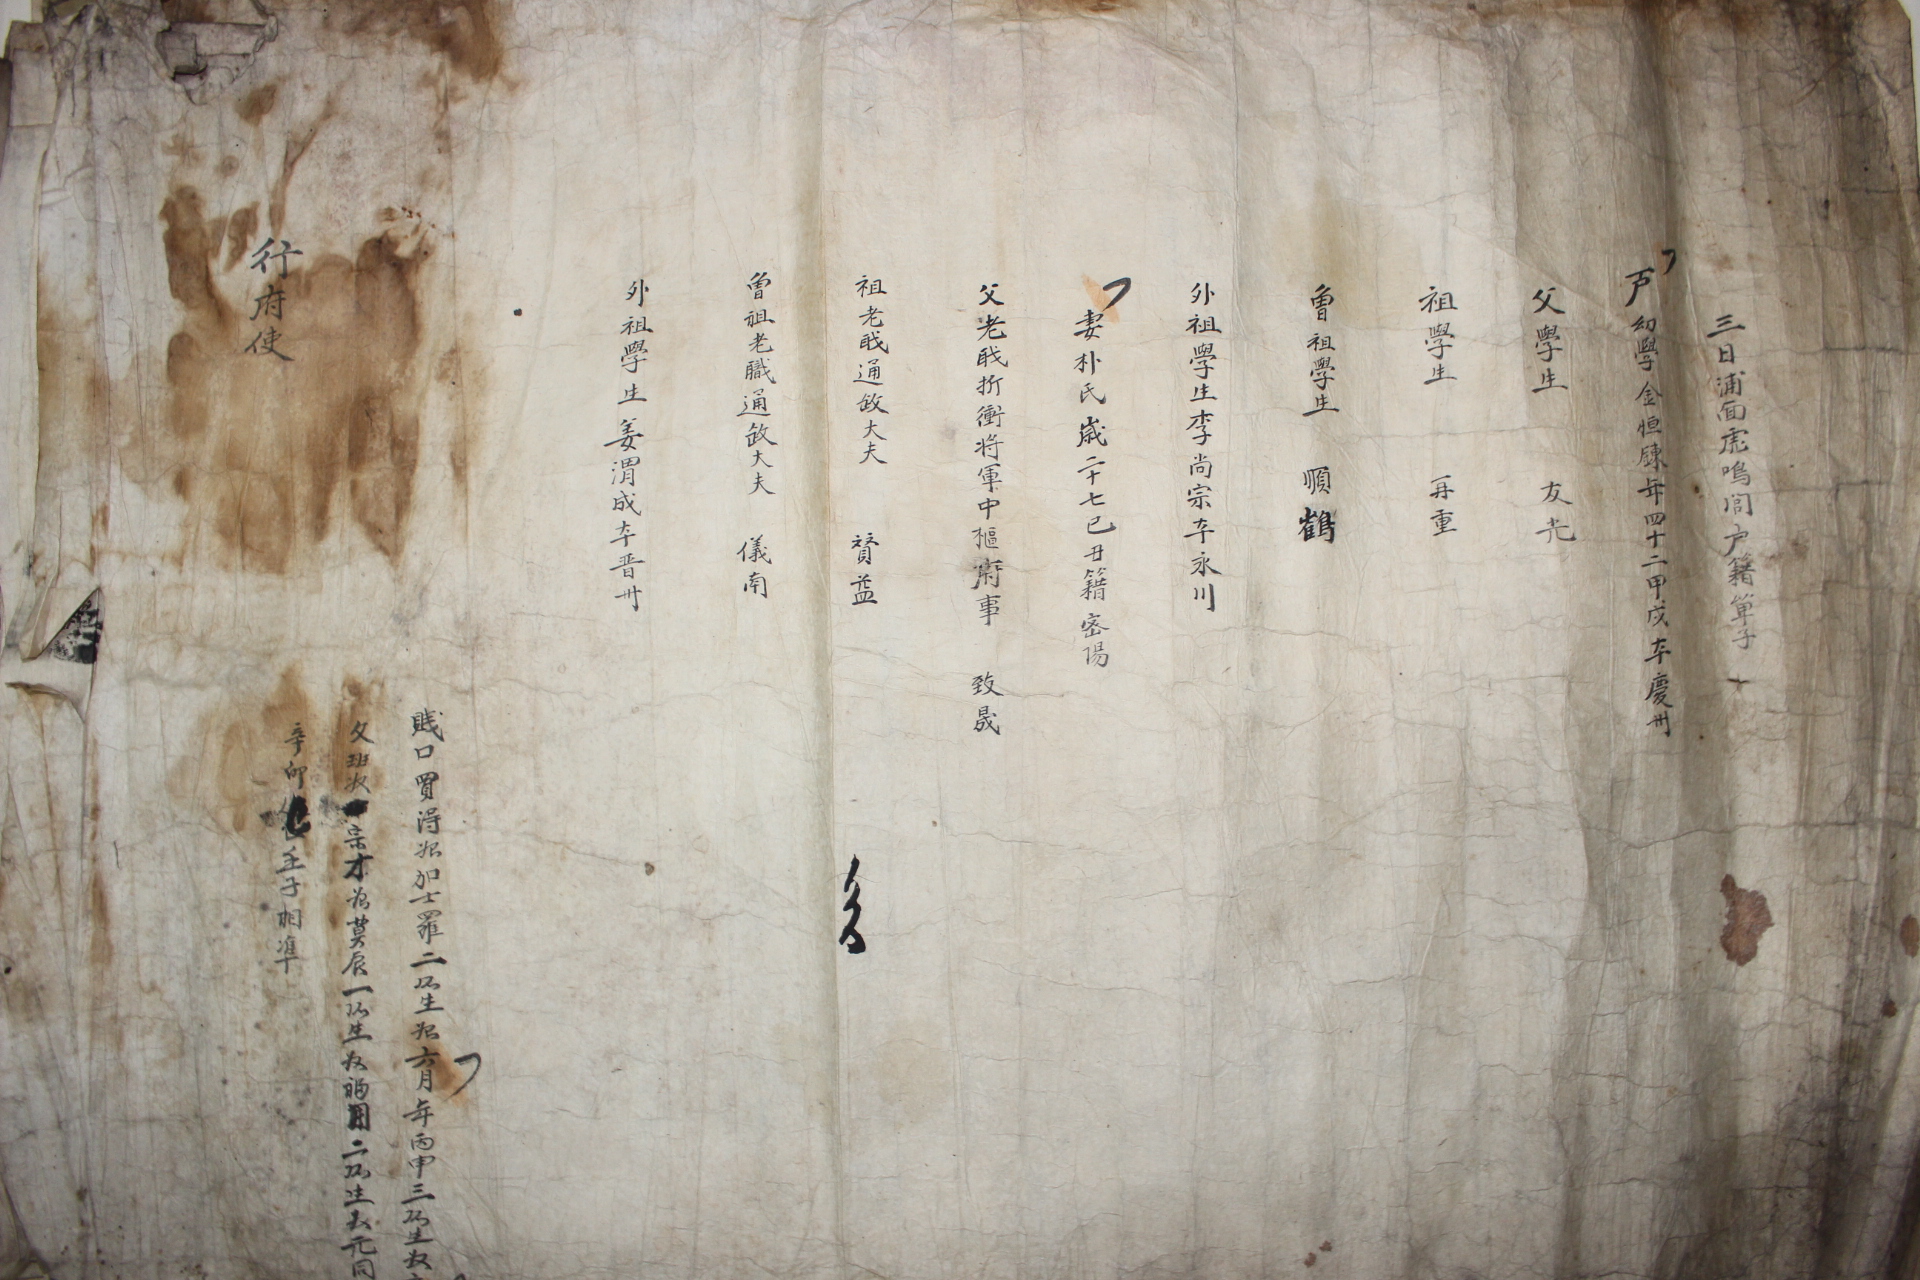 三日浦面虎鳴閭户籍単子
戶幼學金恒鍊年四十二甲戌本慶州
父學生 友光
祖學生 再重
曾祖學生 順鶴
外祖學生李尚宗本永川
妻朴氏歳二十七己丑籍密陽
父老職折衝将軍中樞府事 致晟
祖老職通政大夫 賛益
曽祖老職通政大夫 儀南
外祖學生姜渭成本晋州
賎口買得婢加士羅二所生婢六月年丙申三所生奴
父班奴宗才婢莫辰一所生奴福用二所生奴元同
辛卯壬子相準
行府使